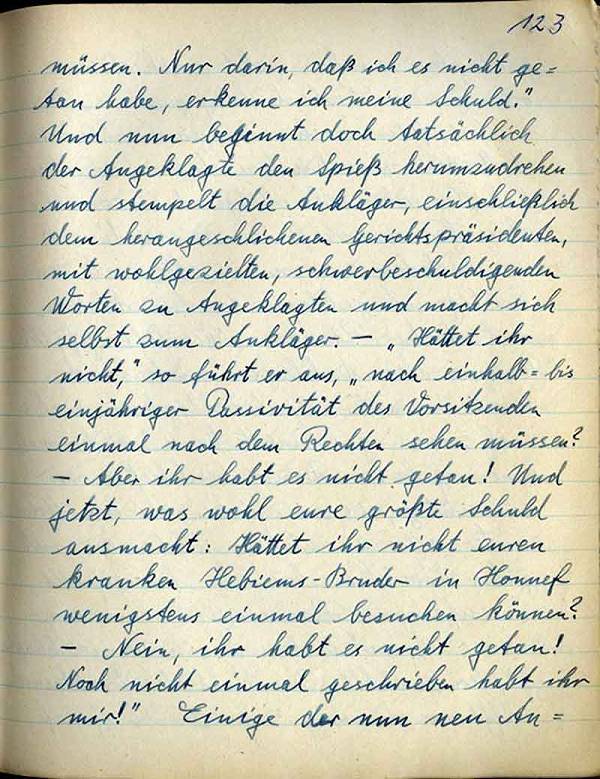 123
müssen. Nur darin, daß ich es nicht ge=
tan habe, erkenne ich meine Schuld."
Und nun beginnt doch tatsächlich
der Angeklagte den Spieß herumzudrehen
und stempelt die Ankläger, einschließlich
dem herangeschlichenen Gerichtspräsidenten,
mit wohlgezielten, schwerbeschuldigenden
Worten zu Angeklagten und macht sich
selbst zum Ankläger. — „Hättet ihr
nicht," so führt er aus, „nach einhalb= bis
einjähriger Passivität des Vorsitzenden
einmal nach dem Rechten sehen müssen?
— Aber ihr habt es nicht getan! Und
jetzt, was wohl eure größte Schuld
ausmacht: Hättet ihr nicht euren
kranken Hebiems-Bruder in Honnef
wenigstens einmal besuchen können?
— Nein, ihr habt es nicht getan!
Noch nicht einmal geschrieben habt ihr
mir!" Einige der nun neu An=